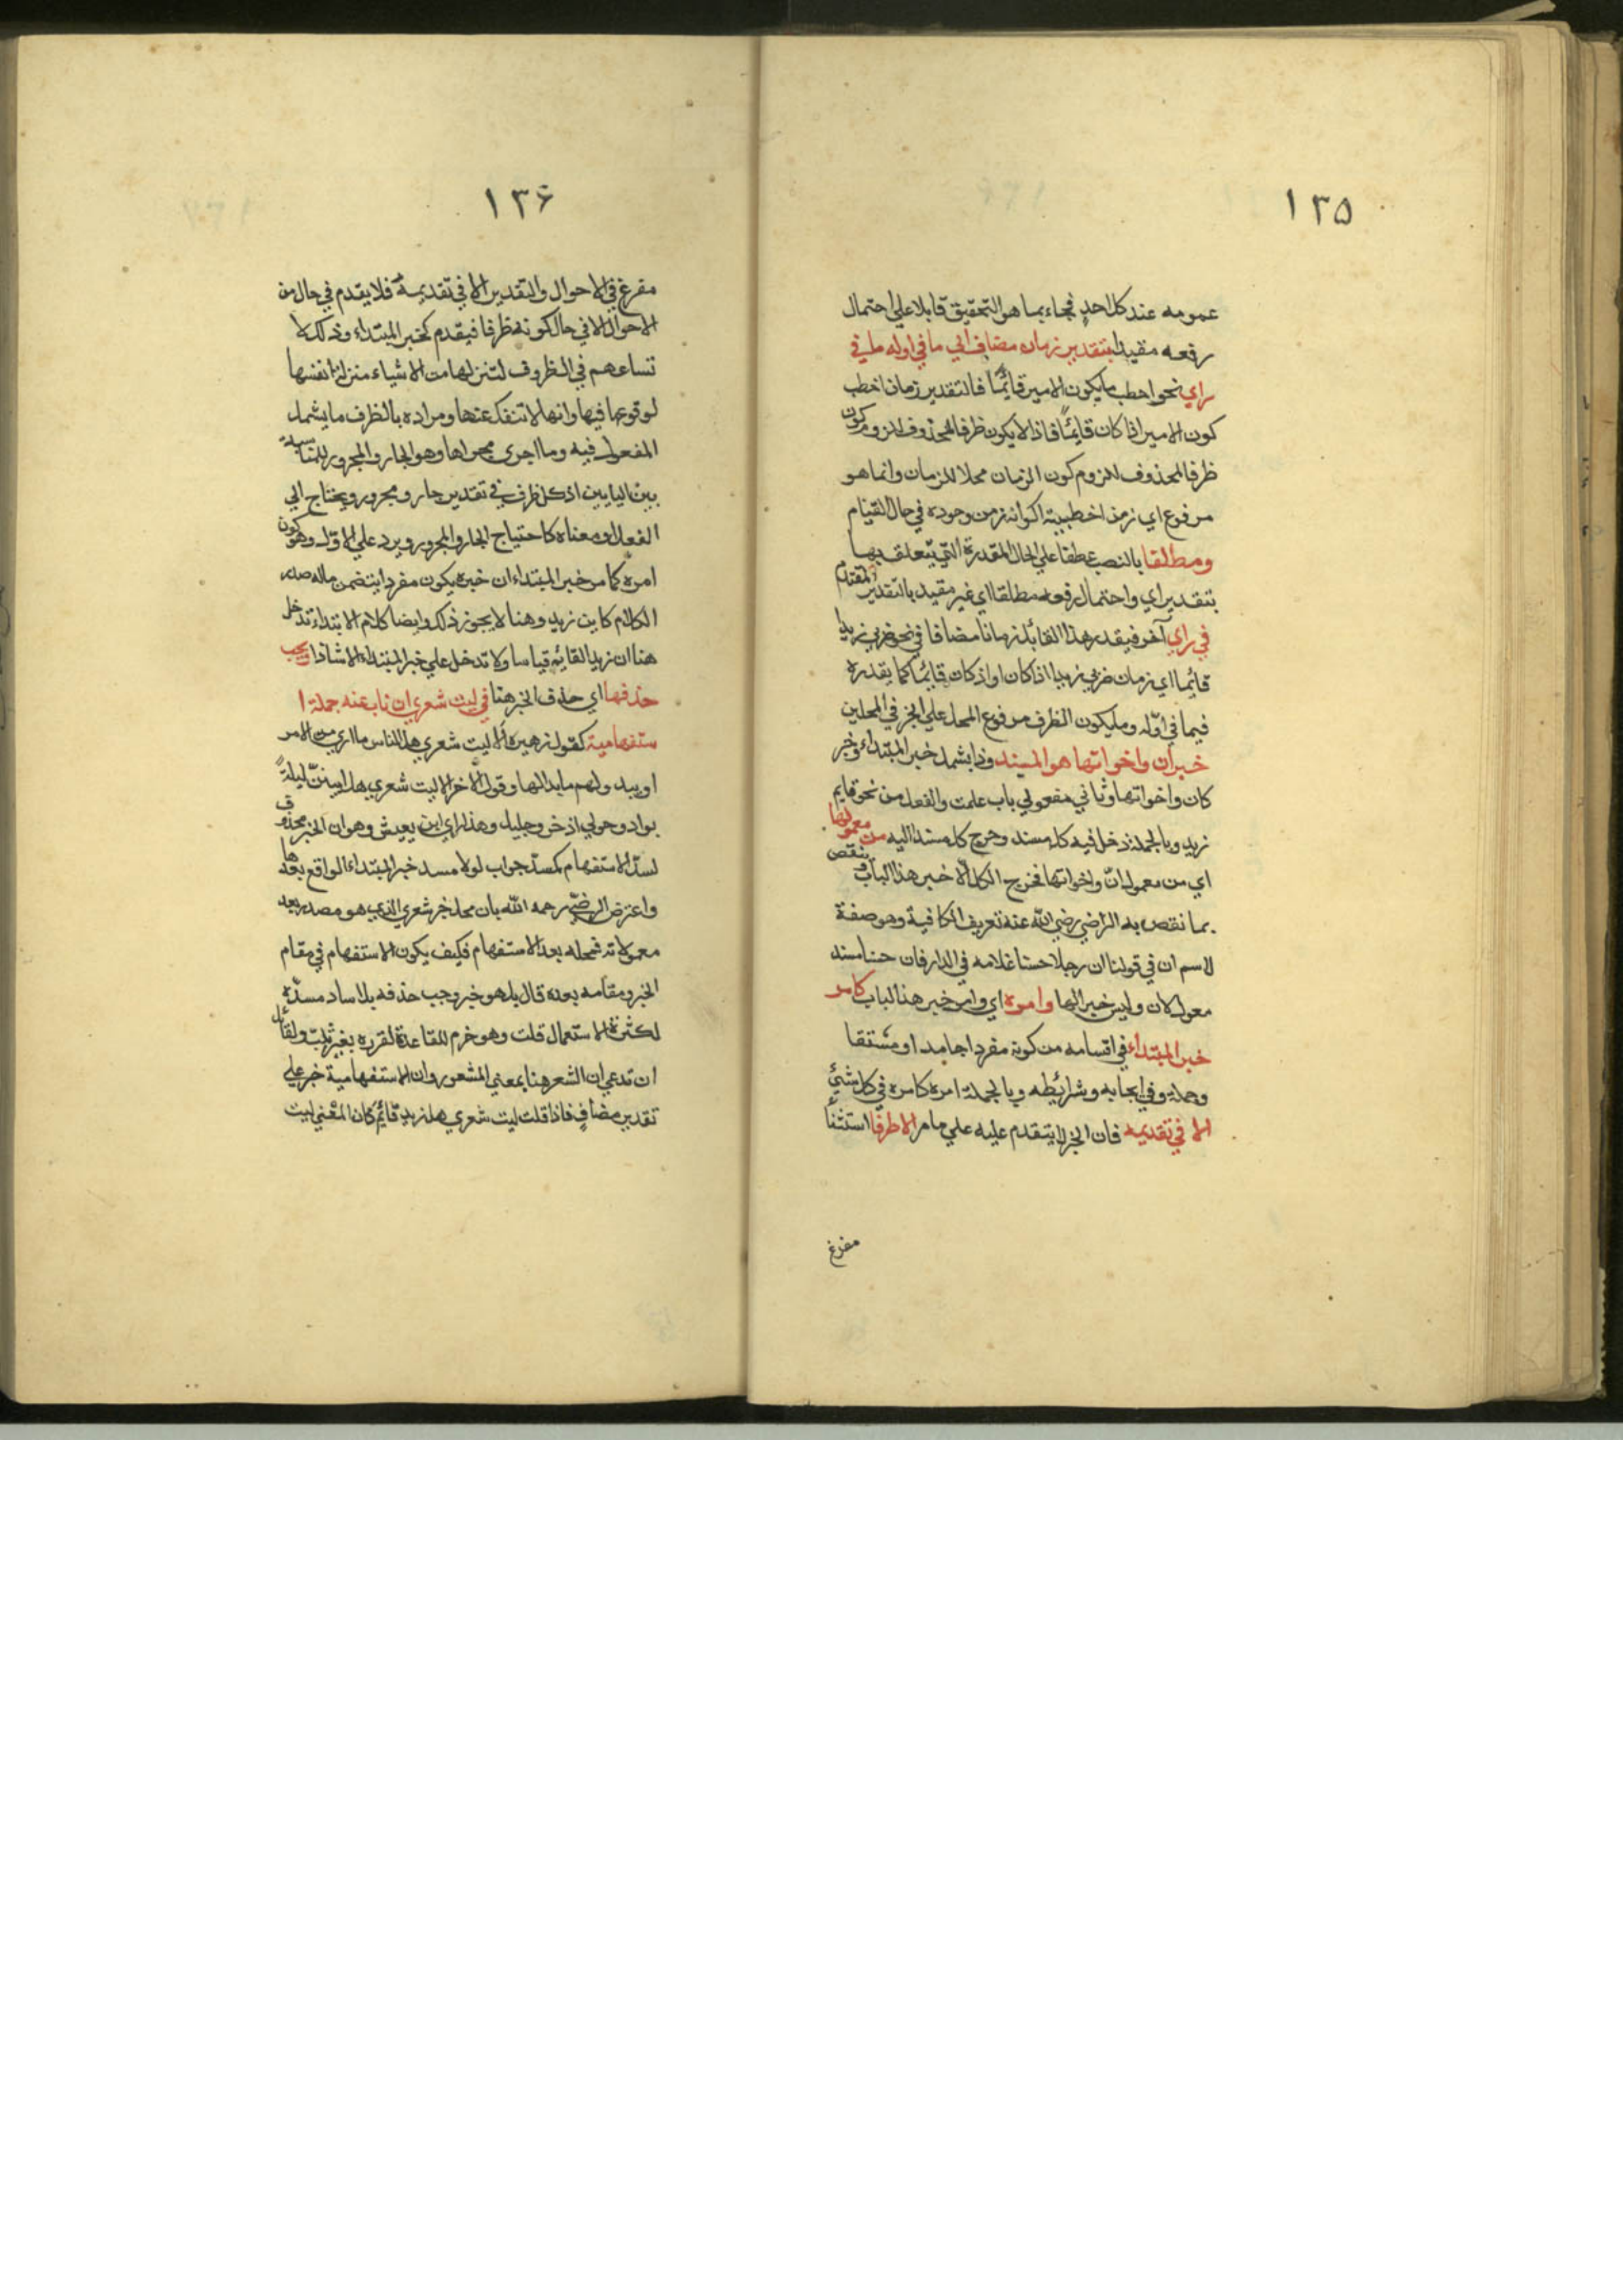 ١٣٥
عمومه عند كل احد فجاء بما هو التحقيق قابلا علي احتمال
رفعه مقيدا بتقدير زمان مضاف الي ما في اوله ما في
راي نحو اخطب ما يكون الامير قائمًا فالتقدير زمان اخطب
كون الامير اذا كان قائمًا فاذا لا يكون ظرفا للمحذوف للزوم كون
ظرفا لمحذوف للزوم كون الزمان محلا للزمان وانما هو
مرفوع اي زمن اخطبية اكوانه زمن وجوده في حال القيام
ومطلقا بالنصب عطفا علي الحال المقدرة التي يتعلق بها
بتقدير اي واحتمال رفعه مطلقا اي غير مقيد بالتقدير المقدم
في راي آخر فيقدر هذا القائل زمانا مضافا في نحو ضربي زيدا
قائما اي زمان ضربي زيدا اذا كان او اذ كان قائما كما يقدره
فيما في اوّله وما يكون الظرف مرفوع المحل علي الخبر في المحلين
خبر ان واخواتها هو المسند وذا يشمل خبر المبتداء وخبر
كان واخواتها وثاني مفعولي باب علمت والفعل من نحو قايم
زيد وبالجملة دخل فيه كل مسند وخرج كل مسند اليه من معمولها
اي من معمول انّ واخواتها فخرج الكل الّا خبر هذا الباب وينقص
بما نقص به الرضي رضي الله عنه تعريف الكافية وهو صفة
لاسم ان في قولنا ان رجلا حسنا غلامه في الدار فان حسنا مسند
معمول لان وليس خبرا لها وامره اي وامر خبر هذا الباب كامر
خبر المبتداء في اقسامه من كونه مفردا جامدا او مشتقا
وجملة وفي ايجابه وشرائطه وبالجملة امره كامره في كل شيئ
الا في تقديمه فان الخبر لا يتقدم عليه علي ما مر الا ظرفًا استثنأ
مفرغ
١٣۶
مفرغ في الاحوال والتقدير الا في تقديمه فلا يقدم في حال من
الاحوال الا في حال كونه ظرفا فيقدم كخبر المبتداء وذلك لا
تساعهم في الظروف لتنزلها من الاشياء منزلة انفسها
لوقوعها فيها وانها لا تنفك عنها ومراده بالظرف ما يشمل
المفعول فيه وما اجري مجراها وهو الجار والمجرور للمناسبة
بين البابين اذ كل ظرف في تقدير جار ومجرور ويحتاج الي
الفعل او معناه كاحتياج الجار والمجرور ويرد علي الاول وهو كون
امره كما مر خبر المبتداء ان خبره يكون مفردا يتضمن ماله صدر
الكلام كاين زيد وهنا لا يجوز ذلك وايضا كلام الابتداء تدخل
هنا ان زيدا لقائم قياسا ولا تدخل علي خبر المبتداء الا شاذا ويجب
حذفها اي حذف الخبر هنا في ليت شعري ان ناب عنه جملة ا
ستفهامية كقول زهير ه ألا ليت شعري هل الناس ما اري من الامر
او يبدو لهم ما بدا لها وقول الاخر الا ليت شعري هل ابيتنّ ليلةً
بواد وحولي اذخر وجليل وهذا راي ابن يعيش وهو ان الخبر محذوف
لسدّ الاستفهام كمسدّ جواب لولا مسد خبر المبتداء الواقع بعدها
واعترض الرضيّ رحمه الله بان محل خبر شعري الذي هو مصدر بعد
معمولاته فمحله بعد الاستفهام فكيف يكون الاستفهام في مقام
الخبر ومقامه بعده قال بل هو خبر وجب حذفه بلا ساد مسدّه
لكثرة الاستعمال قلت وهو خرم للقاعدة المقرره بغير ثبت ولقائل
ان تدعي ان الشعر هنا بمعني المشعور وان الاستفهامية خبر علي
تقدير مضاف فاذا قلت ليت شعري هل زيد قائم كان المعني ليت